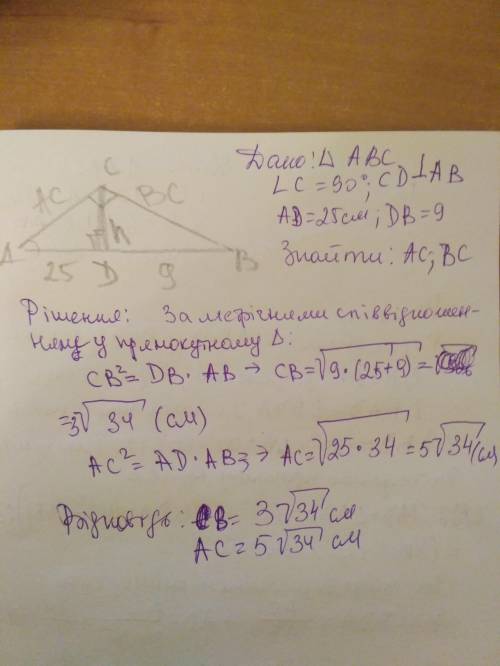 Дано: Δ ABC
∠C = 90°; CD⊥AB
AD = 25см; DB = 9
Знайти: AC; BC
C
AC BC
h
A 25 D 9 B
Рішення: За метрічними співвідношен-
нями у прямокутному Δ:
CB² = DB · AB → CB = √9 · (25+9) =
= 3√34 (см)
AC² = AD · AB → AC = √25 · 34 = 5√34 (см
Відповідь: CB = 3√34 см
AC = 5√34 см